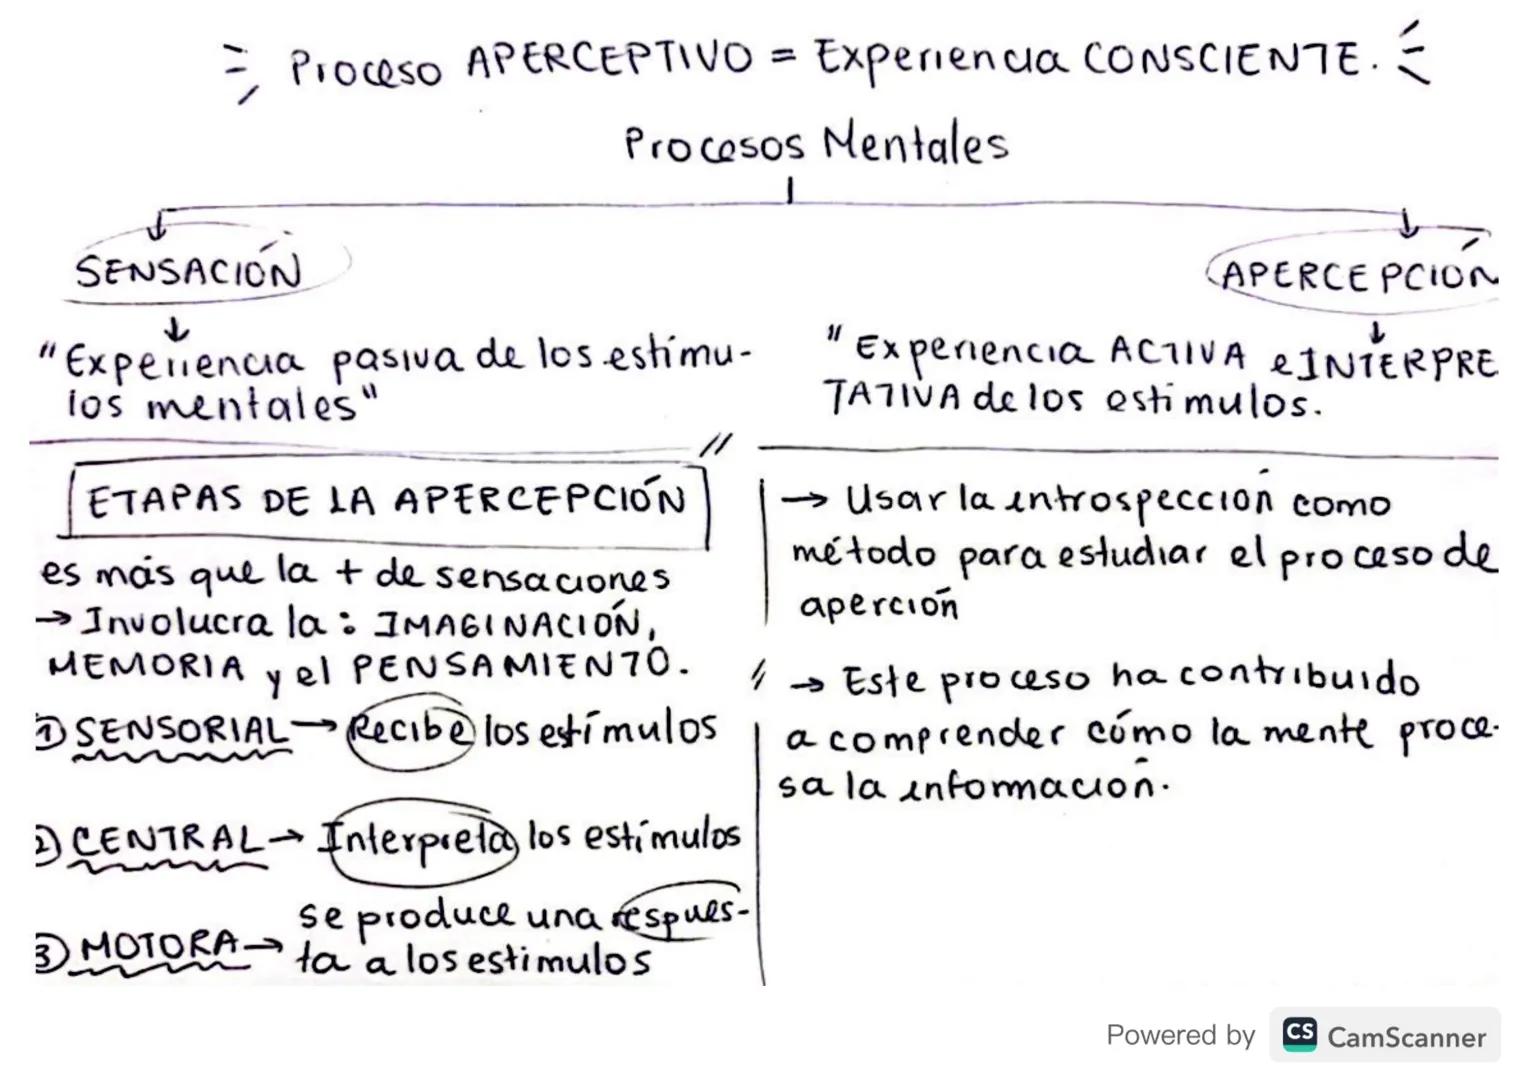 Proceso APERCEPTIVO = Experiencia CONSCIENTE.
Procesos Mentales
SENSACIÓN
"Experiencia pasiva de los estímu-
los mentales"
APERCEPCIÓN
"Experiencia ACTIVA e INTERPRE
TATIVA de los estimulos.
ETAPAS DE LA APERCEPCIÓN
es más que la + de sensaciones
→ Involucra la: IMAGINACIÓN,
MEMORIA y el PENSAMIENTO.
① SENSORIAL → Recibe los estímulos
② CENTRAL → Interpreta los estímulos
③ MOTORA → se produce una respues-
ta a los estimulos
→ Usar la introspección como
método para estudiar el proceso de
aperción
→ Este proceso ha contribuido
a comprender cómo la mente proce-
sa la información.
Powered by CS CamScanner